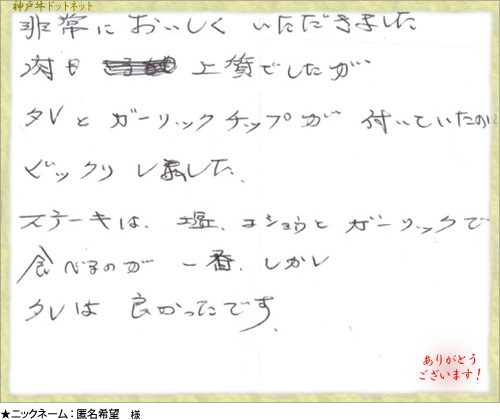 神戸牛ドットネット
非常に おいしく いただきました
肉も 上質でしたが
タレと ガーリックチップが 付いていたのに
ビックリしました.
ステーキは、塩、コショウと ガーリックで
食べるのが 一番、しかし
タレは 良かったです.
ありがとう
ございます!
★ニックネーム:匿名希望 様